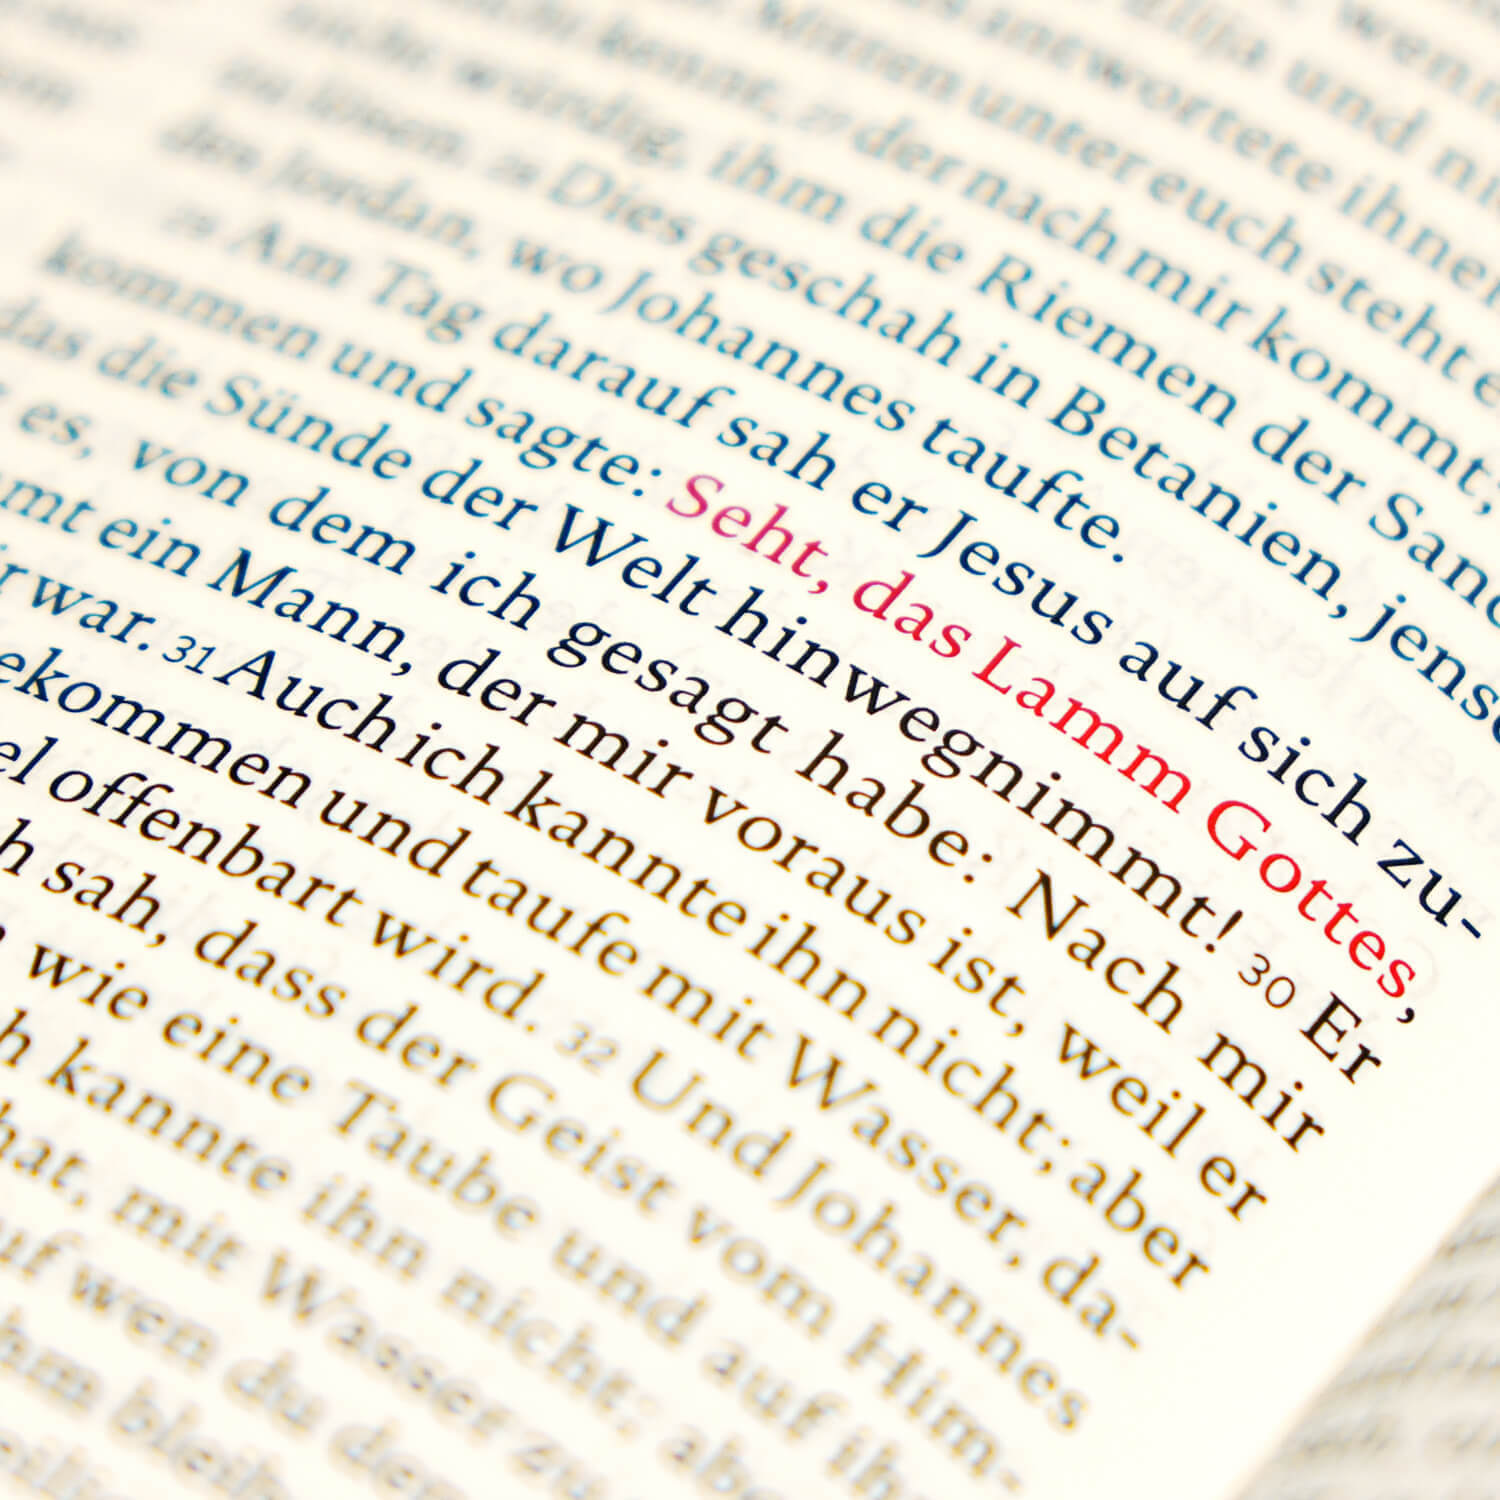 wenn
Elija und
antwortete ihnen
Mitten unter euch steht
ihr kennt, 27 der nach mir kommt;
würdig, ihm die Riemen der Sand
zu lösen. 28 Dies geschah in Betanien, jense
des Jordan, wo Johannes taufte.
29 Am Tag darauf sah er Jesus auf sich zu-
kommen und sagte: Seht, das Lamm Gottes,
das die Sünde der Welt hinwegnimmt! 30 Er
es, von dem ich gesagt habe: Nach mir
mt ein Mann, der mir voraus ist, weil er
r war. 31 Auch ich kannte ihn nicht; aber
ekommen und taufe mit Wasser, da-
el offenbart wird. 32 Und Johannes
h sah, dass der Geist vom Him-
wie eine Taube und auf ih
h kannte ihn nicht; abe
hat, mit Wasser zu
uf wen du den
hm bleib